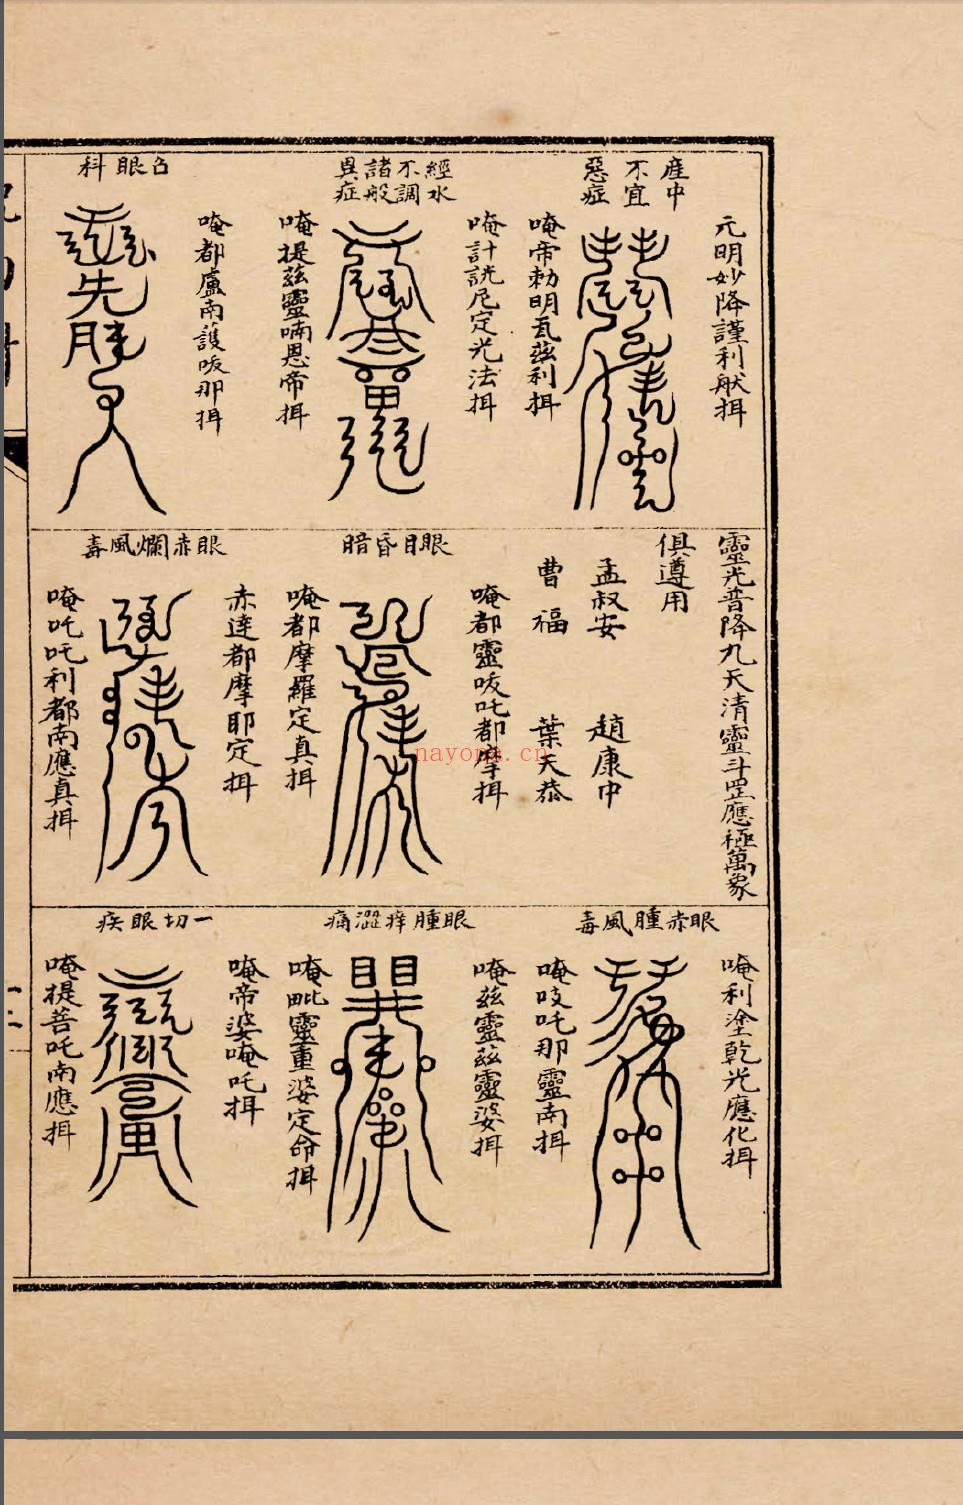 元明妙降謹利猷揖
產中
不宜
惡症
唵帝勅明瓦茲利揖
唵計詵尼定光法揖
經水
不調
諸般
異症
唵提茲靈喃恩帝揖
唵都盧南護㕹那揖
眼科
靈光普降九天清靈斗罡應極萬象
俱遵用
孟叔安
趙康中
曹福
葉天恭
唵都靈㕹吒都摩揖
眼目昏暗
唵都摩羅定真揖
赤達都摩耶定揖
眼赤爛風毒
唵吒吒利都南應真揖
唵利塗乾光應化揖
眼赤腫風毒
唵吱吒那靈南揖
唵茲靈茲靈婆揖
眼腫痒澀痛
唵毗靈重婆定命揖
唵帝婆唵吒揖
一切眼疾
唵提菩吒南應揖
nayona.cn